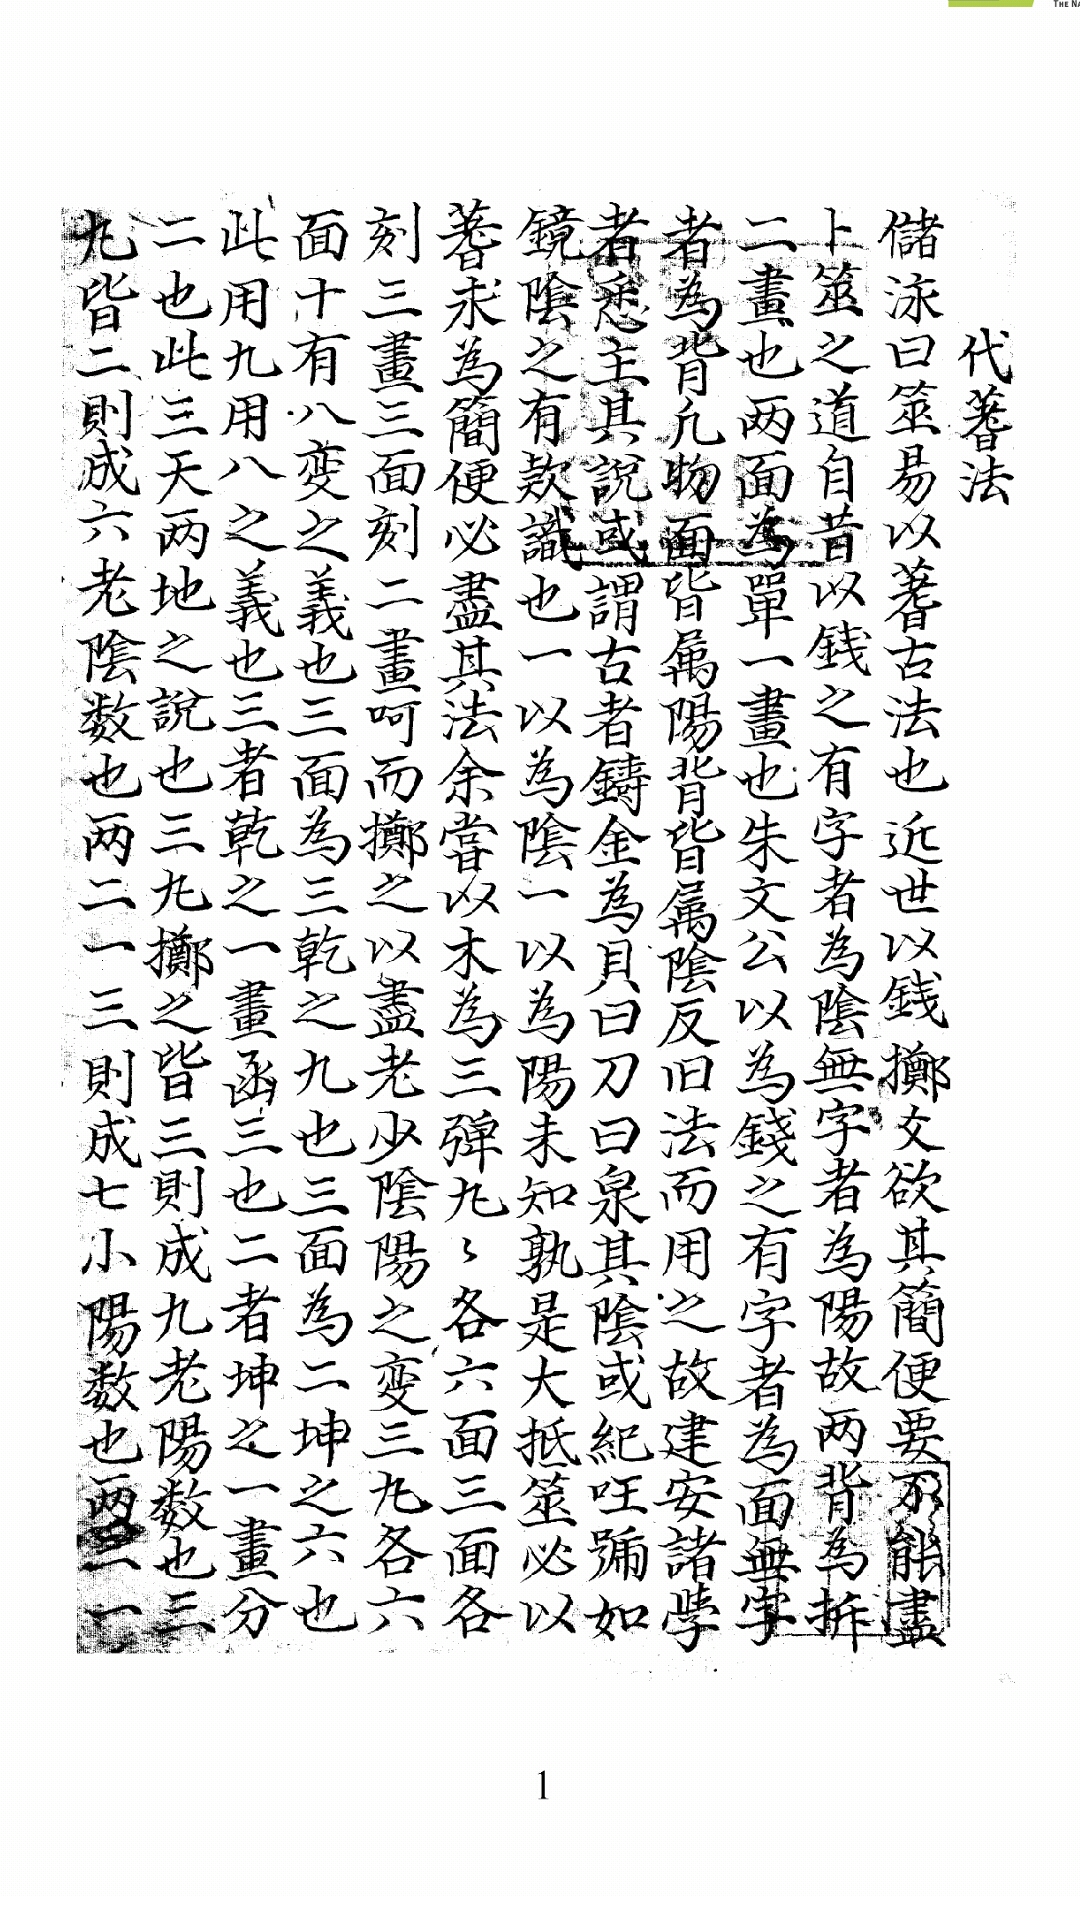 THE NA
代蓍法
儲泳曰筮易以蓍古法也近世以錢擲爻欲其簡便要不能盡
卜筮之道自昔以錢之有字者為陰無字者為陽故两背為拆
二畫也两面為單一畫也朱文公以為錢之有字者為面無字
者為背凢物面皆属陽背皆属陰反旧法而用之故建安諸學
者悉主其說或謂古者鑄金為貝曰刀曰泉其陰或紀呾號如
鏡陰之有款識也一以為陰一以為陽未知孰是大抵筮必以
蓍求為簡便必盡其法余嘗以木為三彈丸〻各六面三面各
刻三畫三面刻二畫呵而擲之以盡老少陰陽之变三丸各六
面十有八变之義也三面為三乾之九也三面為二坤之六也
此用九用八之義也三者乾之一畫函三也二者坤之一畫分
二也此三天两地之說也三丸擲之皆三則成九老陽数也三
丸皆二則成六老陰数也两二一三則成七小陽数也两三一
1